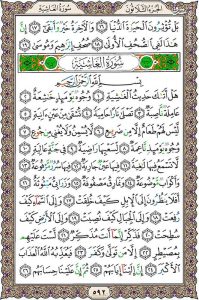 سُورَةُ الغَاشِيَةِ الجُزْءُ الثَّلَاثُونَ
بَلْ تُؤْثِرُونَ الْحَيَوٰةَ الدُّنْيَا ١٦ وَالْآخِرَةُ خَيْرٌ وَأَبْقَىٰ ١٧ إِنَّ
هَٰذَا لَفِي الصُّحُفِ الْأُولَىٰ ١٨ صُحُفِ إِبْرَٰهِيمَ وَمُوسَىٰ ١٩
سُورَةُ الغَاشِيَةِ
بِسْمِ اللَّهِ الرَّحْمَٰنِ الرَّحِيمِ
هَلْ أَتَىٰكَ حَدِيثُ الْغَٰشِيَةِ ١ وُجُوهٌ يَوْمَئِذٍ خَٰشِعَةٌ ٢
عَامِلَةٌ نَّاصِبَةٌ ٣ تَصْلَىٰ نَارًا حَامِيَةً ٤ تُسْقَىٰ مِنْ عَيْنٍ ءَانِيَةٍ ٥
لَّيْسَ لَهُمْ طَعَامٌ إِلَّا مِن ضَرِيعٍ ٦ لَّا يُسْمِنُ وَلَا يُغْنِي مِن جُوعٍ ٧
وُجُوهٌ يَوْمَئِذٍ نَّاعِمَةٌ ٨ لِّسَعْيِهَا رَاضِيَةٌ ٩ فِي جَنَّةٍ عَالِيَةٍ ١٠
لَّا تَسْمَعُ فِيهَا لَٰغِيَةً ١١ فِيهَا عَيْنٌ جَارِيَةٌ ١٢ فِيهَا سُرُرٌ مَّرْفُوعَةٌ ١٣
وَأَكْوَابٌ مَّوْضُوعَةٌ ١٤ وَنَمَارِقُ مَصْفُوفَةٌ ١٥ وَزَرَابِيُّ مَبْثُوثَةٌ ١٦
أَفَلَا يَنظُرُونَ إِلَى الْإِبِلِ كَيْفَ خُلِقَتْ ١٧ وَإِلَى السَّمَاءِ كَيْفَ
رُفِعَتْ ١٨ وَإِلَى الْجِبَالِ كَيْفَ نُصِبَتْ ١٩ وَإِلَى الْأَرْضِ كَيْفَ
سُطِحَتْ ٢٠ فَذَكِّرْ إِنَّمَا أَنتَ مُذَكِّرٌ ٢١ لَّسْتَ عَلَيْهِم
بِمُصَيْطِرٍ ٢٢ إِلَّا مَن تَوَلَّىٰ وَكَفَرَ ٢٣ فَيُعَذِّبُهُ اللَّهُ الْعَذَابَ
الْأَكْبَرَ ٢٤ إِنَّ إِلَيْنَا إِيَابَهُمْ ٢٥ ثُمَّ إِنَّ عَلَيْنَا حِسَابَهُم ٢٦
٥٩٢